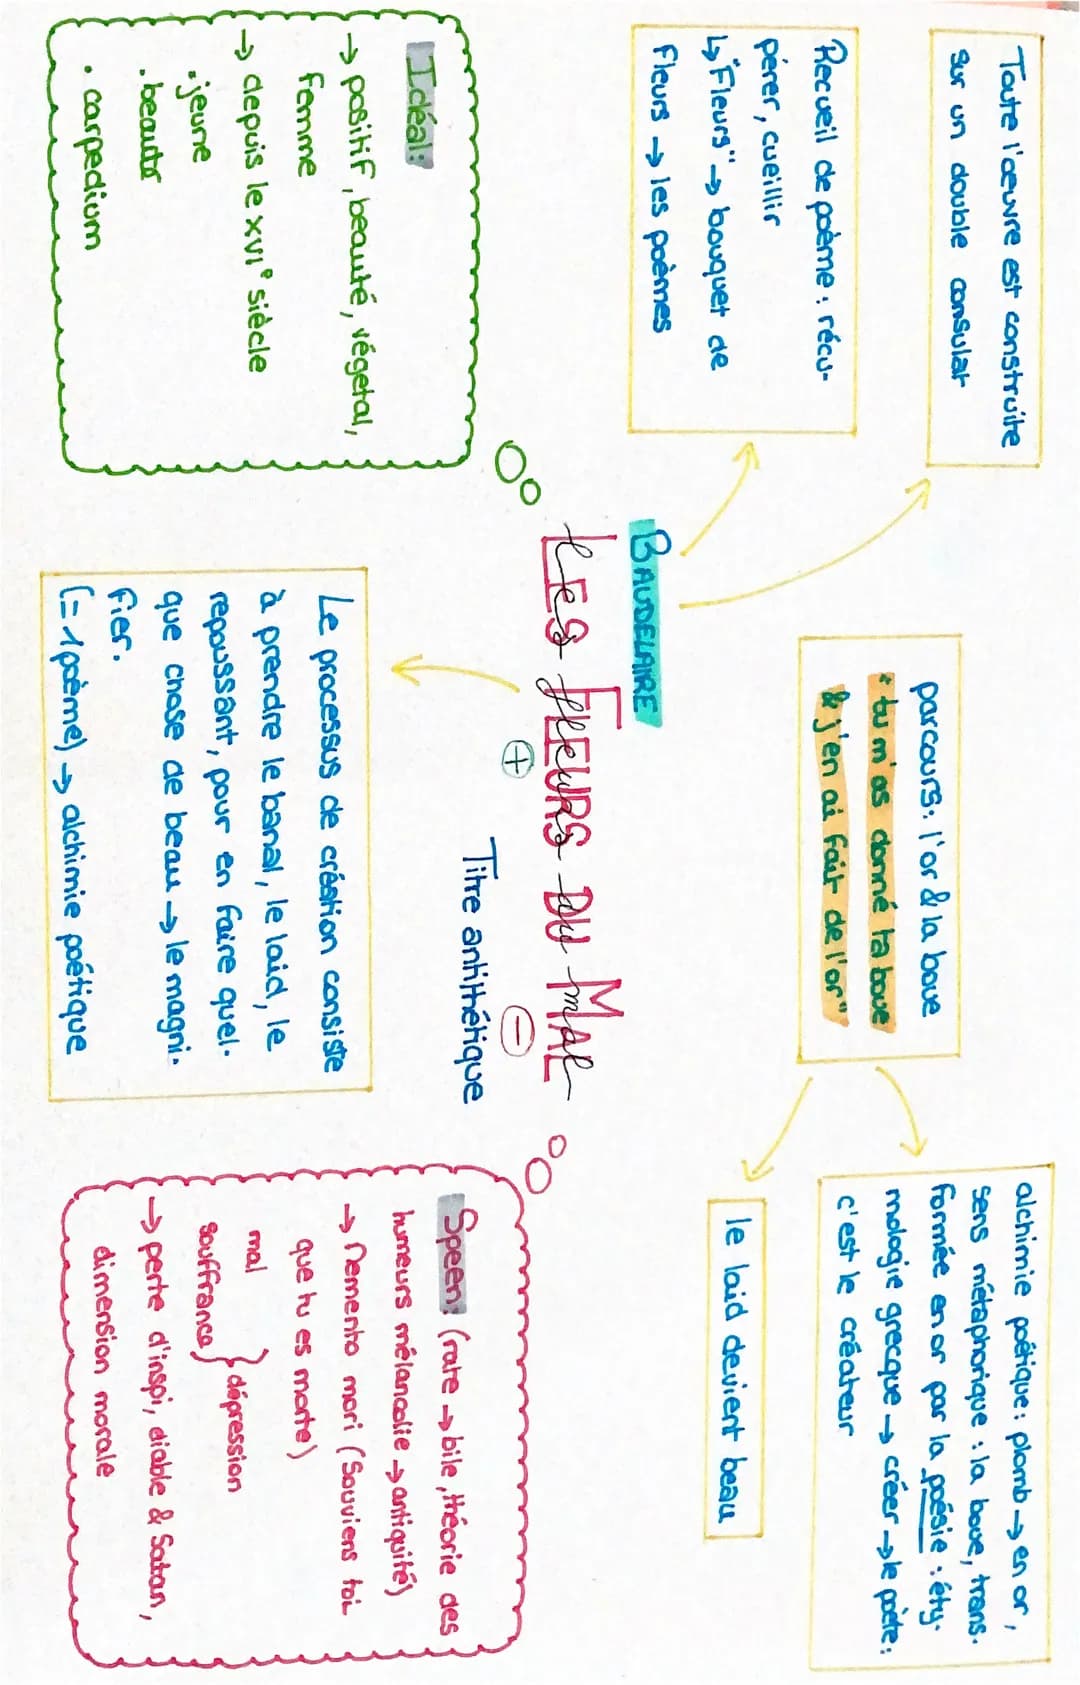 Toute l'œuvre est construite
sur un double consulat
Recueil de poème : récu-
pérer, cueillir
↳ "Fleurs" → bouquet de
fleurs → les poèmes
parcours : l'or & la boue
"tu m'as donné ta boue
& j'en ai fait de l'or"
alchimie poétique : plomb → en or,
sens métaphorique : la boue, trans-
formée en or par la poésie : éty-
mologie grecque → créer → le poète :
c'est le créateur
le laid devient beau
BAUDELAIRE
LES FLEURS DU MAL
+
-
Titre antithétique
Idéal :
→ positif, beauté, végétal,
femme
→ depuis le XVI° siècle
. jeune
. beauté
. carpedium
Le processus de création consiste
à prendre le banal, le laid, le
repoussant, pour en faire quel-
que chose de beau → le magni-
fier.
(= 1 poème) → alchimie poétique
Speen : (rate → bile, théorie des
humeurs mélancolie → antiquité)
→ Memento mori (Souviens toi
que tu es morte)
mal
souffrance } dépression
→ perte d'inspi, diable & Satan,
dimension morale